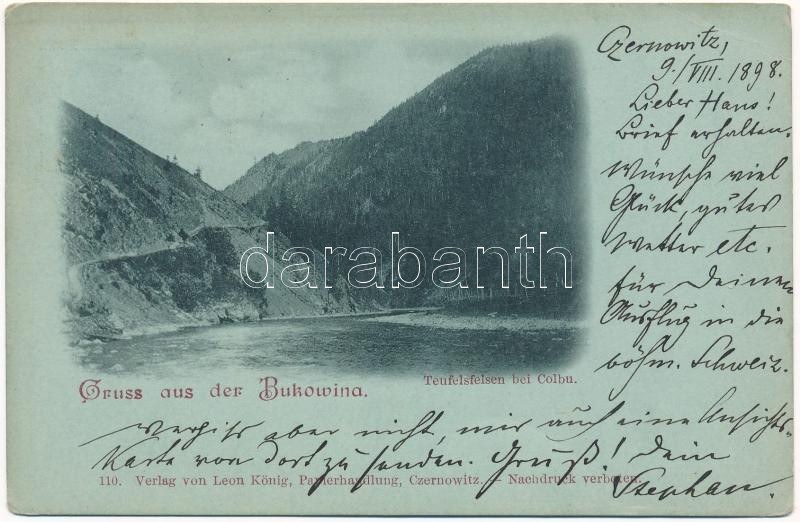 Czernowitz,
9./VIII. 1898.
Lieber Hans!
Brief erhalten.
Wünsche viel
Glück, gutes
Wetter etc.
für Deinen
Ausflug in die
böhm. Schweiz.
darabanth
Teufelsfelsen bei Colbu.
Gruss aus der Bukowina.
Vergiss aber nicht, mir auch eine Ansichts-
Karte von dort zu senden. Gruß! Dein
Stephan.
110. Verlag von Leon König, Papierhandlung, Czernowitz. – Nachdruck verboten.